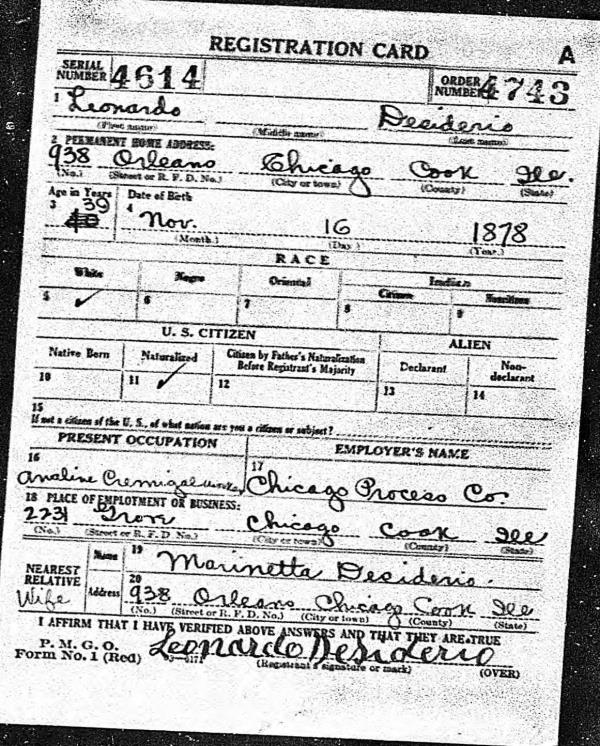 REGISTRATION CARD A
SERIAL NUMBER 4614 ORDER NUMBER 4743
1 Leonardo Desiderio
(First name) (Middle name) (Last name)
2 PERMANENT HOME ADDRESS:
938 Orleans Chicago Cook Ill.
(No.) (Street or R. F. D. No.) (City or town) (County) (State)
Age in Years Date of Birth
3 39 4 Nov. 16 1878
(Month.) (Day.) (Year.)
RACE
White Negro Oriental Indian
Citizen Noncitizen
5 ✓ 6 7 8 9
U. S. CITIZEN ALIEN
Native Born Naturalized Citizen by Father's Naturalization Before Registrant's Majority Declarant Non-declarant
10 11 ✓ 12 13 14
15
If not a citizen of the U. S., of what nation are you a citizen or subject?
PRESENT OCCUPATION EMPLOYER'S NAME
16 17
Chicago Process Co.
18 PLACE OF EMPLOYMENT OR BUSINESS:
2231 Grove Chicago Cook Ill
(No.) (Street or R. F. D. No.) (City or town) (County) (State)
NEAREST RELATIVE Name 19 Marinetta Desiderio.
Wife Address 20 938 Orleans Chicago Cook Ill
(No.) (Street or R. F. D. No.) (City or town) (County) (State)
I AFFIRM THAT I HAVE VERIFIED ABOVE ANSWERS AND THAT THEY ARE TRUE
P. M. G. O.
Form No. 1 (Red) Leonardo Desiderio
(Registrant's signature or mark) (OVER)